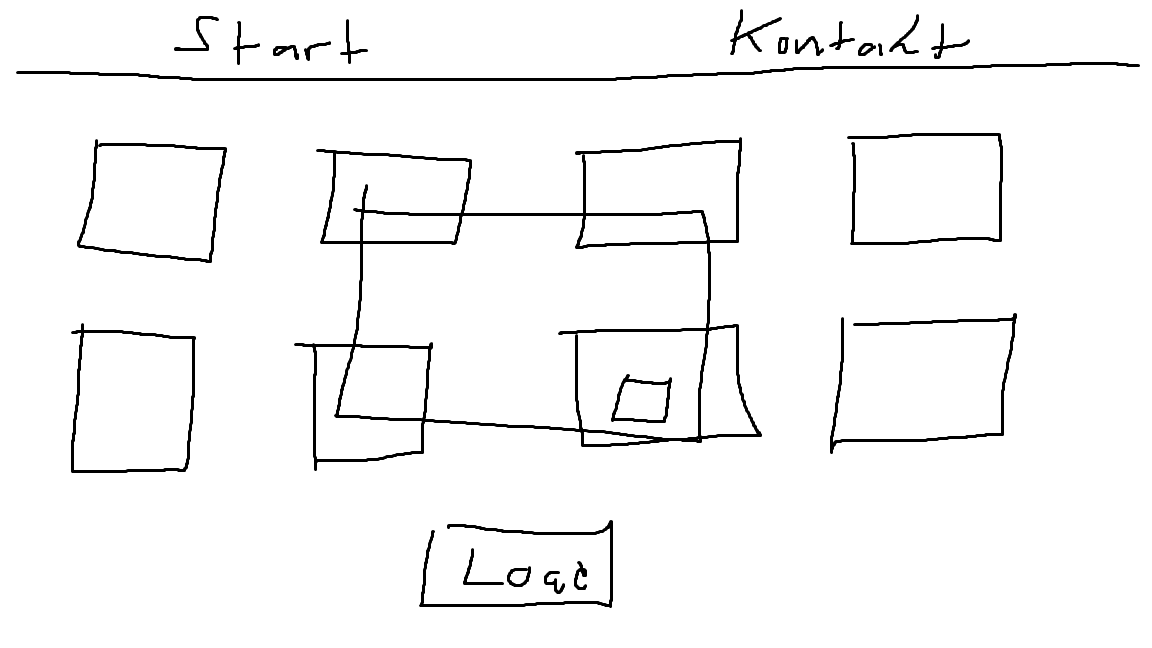 Start Kontakt
Load